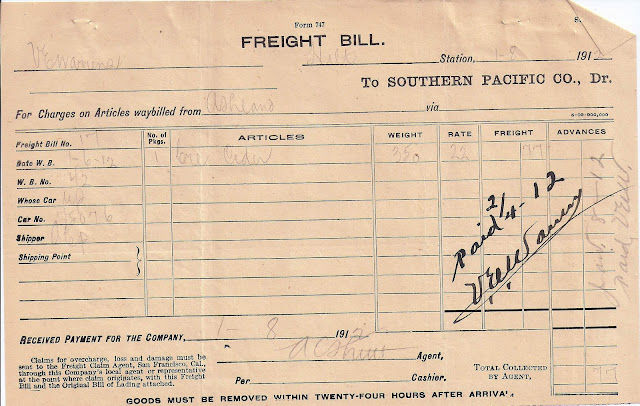 Form 747
FREIGHT BILL.
Station, 1-8 1912
To SOUTHERN PACIFIC CO., Dr.
For Charges on Articles waybilled from Ashland via
5-09-900,000
Freight Bill No. 17
No. of Pkgs. ARTICLES WEIGHT RATE FREIGHT ADVANCES
1 Cider 350 22 77
Date W. B. 1-6-12
W. B. No. 42
Whose Car
Car No.
Shipper
Shipping Point
Paid 2/4-12
Jan 8-12
paid
RECEIVED PAYMENT FOR THE COMPANY, 1-8 1912
Agent,
Claims for overcharge, loss and damage must be
sent to the Freight Claim Agent, San Francisco, Cal.,
through this Company's local agent or representative
at the point where claim originates, with this Freight
Bill and the Original Bill of Lading attached.
Per Cashier.
TOTAL COLLECTED
BY AGENT,
GOODS MUST BE REMOVED WITHIN TWENTY-FOUR HOURS AFTER ARRIVA